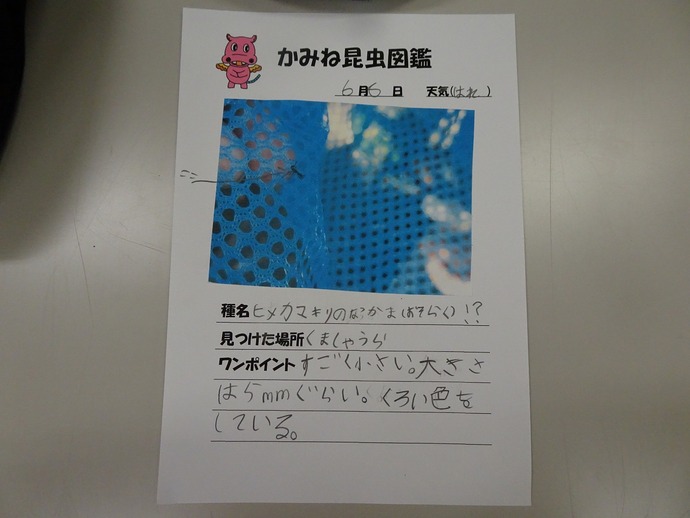 かみね昆虫図鑑
6月6日 天気(はれ)
ここ
種名 ヒメカマキリのなかま(おそらく)!?
見つけた場所 くましゃうら
ワンポイント すごく小さい。大きさ
は5mmぐらい。くろい色を
している。